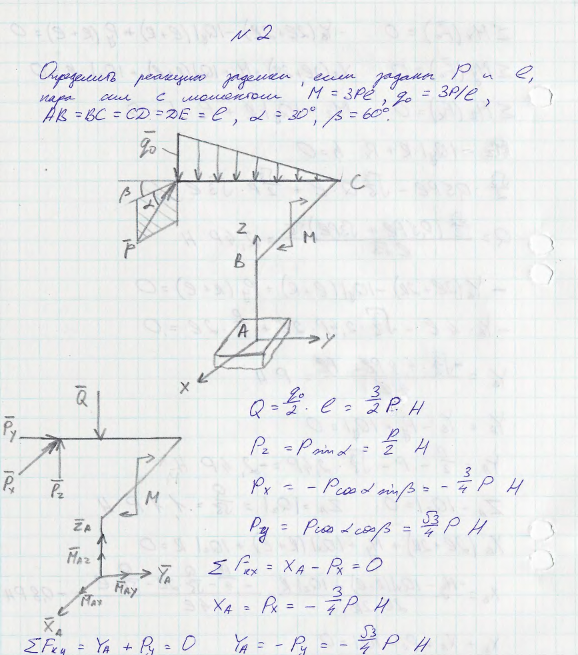 N 2
Определить реакцию заделки, если заданы P и l,
пара сил с моментом M = 3Pl, q₀ = 3P/l,
AB = BC = CD = DE = l, α = 30°, β = 60°.
q̅₀
β
α
C
P̅
Z
M
B
A
Y
X
Q̅
P̅y
P̅x
P̅z
M
Z̅A
M̅Az
Y̅A
M̅Ay
M̅Ax
X̅A
Q = q₀/2 · l = 3/2 P · H
Pz = P sin α = P/2 H
Px = - P cos α sin β = - 3/4 P H
Py = P cos α cos β = √3/4 P H
ΣFкx = XA - Px = 0
XA = Px = - 3/4 P H
ΣFкy = YA + Py = 0 YA = - Py = - √3/4 P H